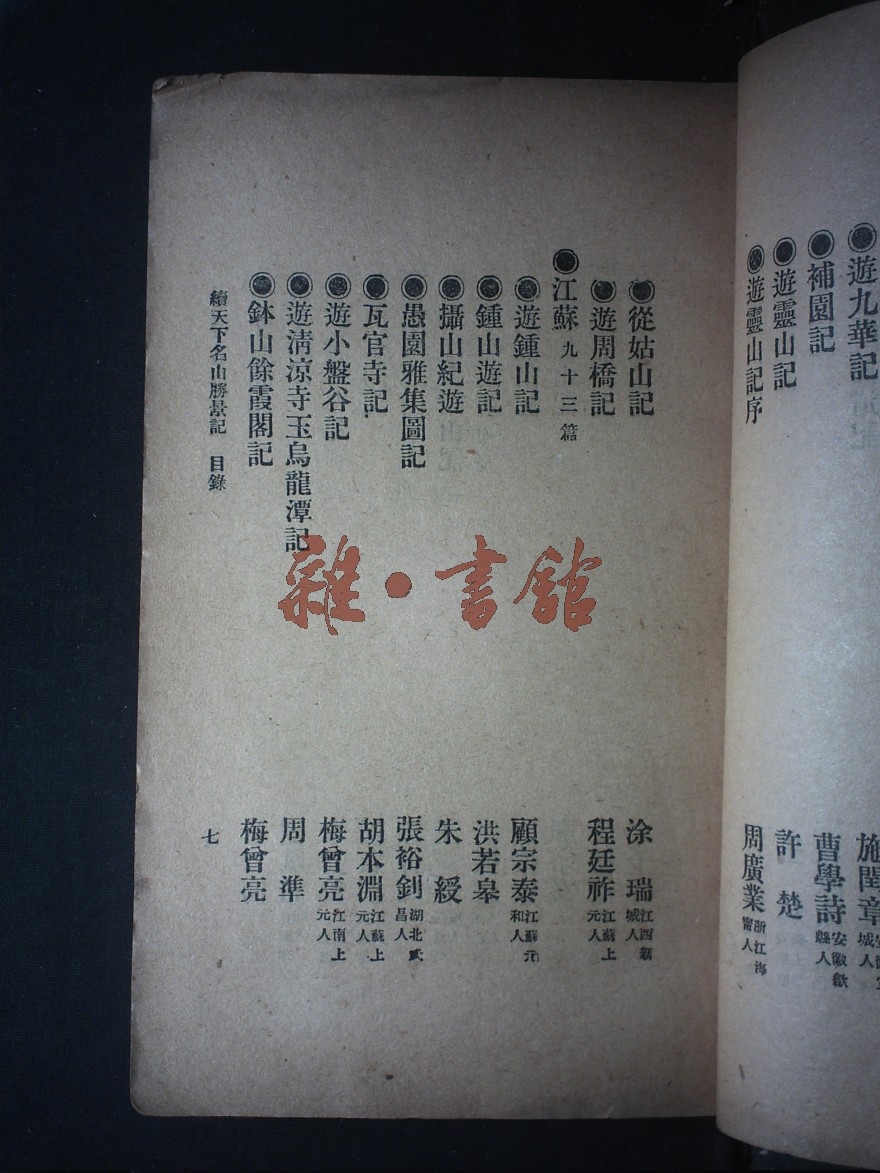 遊九華記
補園記 曹學詩 安徽歙縣人
遊靈山記 許楚
遊靈山記序 周廣業 浙江海甯人
從姑山記 涂瑞 江西新城人
遊周橋記 程廷祚 江蘇上元人
江蘇 九十三篇
遊鍾山記 顧宗泰 江蘇元和人
鍾山遊記 洪若皋
攝山紀遊 朱綬
愚園雅集圖記 張裕釗 湖北武昌人
瓦官寺記 胡本淵 江蘇上元人
遊小盤谷記 梅曾亮 江南上元人
遊清涼寺玉烏龍潭記 周準
鉢山餘霞閣記 梅曾亮
續天下名山勝景記 目錄 七
雜·書館